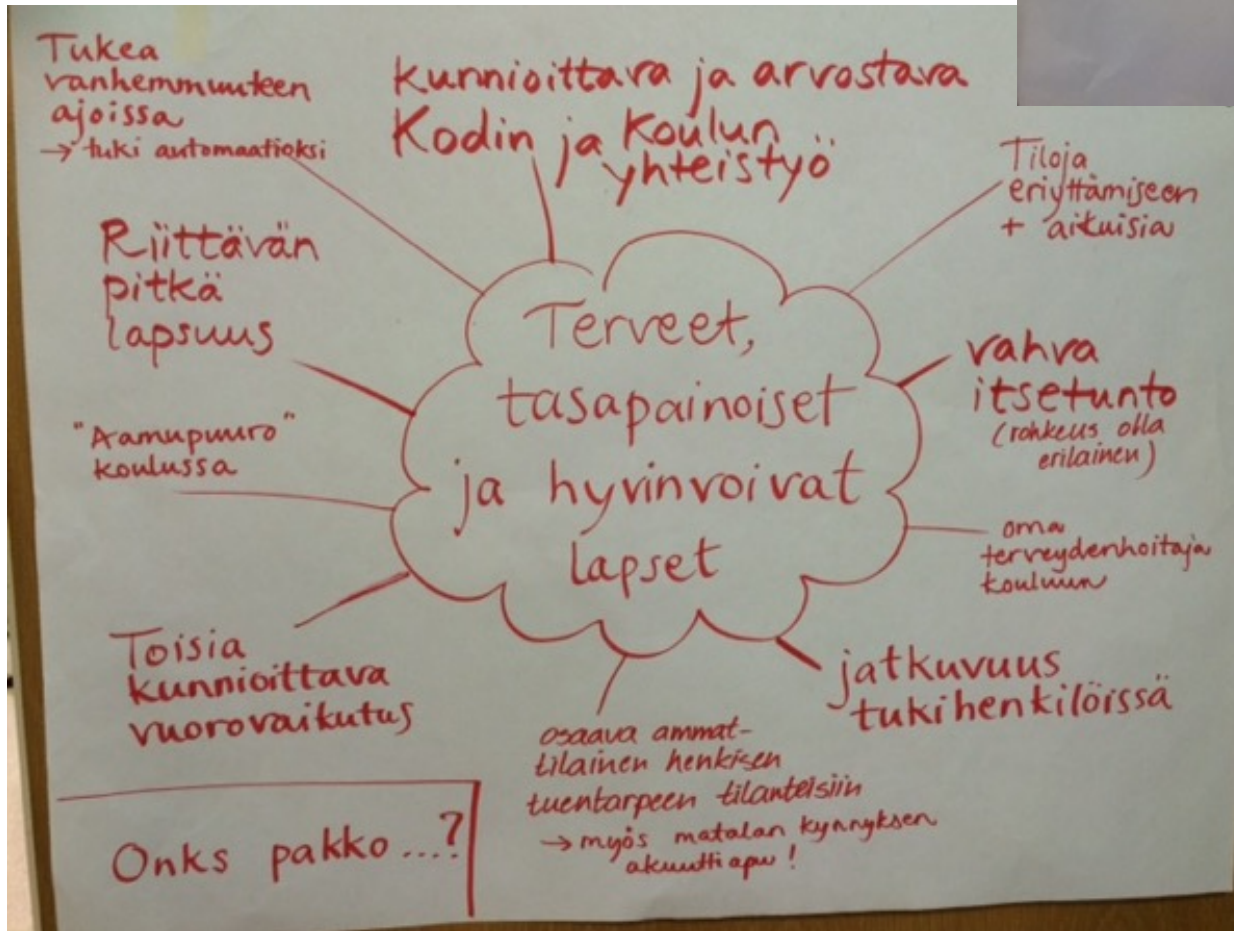 Tukea
vanhemmuuteen
ajoissa
→ tuki automaatioksi
kunnioittava ja arvostava
Kodin ja Koulun
yhteistyö
Tiloja
eriyttämiseen
+ aikuisia
Riittävän
pitkä
lapsuus
Terveet,
tasapainoiset
ja hyvinvoivat
lapset
vahva
itsetunto
(rohkeus olla
erilainen)
"Aamupuuro"
koulussa
oma
terveydenhoitaja
kouluun
Toisia
kunnioittava
vuorovaikutus
jatkuvuus
tukihenkilöissä
osaava ammat-
tilainen henkisen
tuentarpeen tilanteisiin
→ myös matalan kynnyksen
akuuttiapu!
Onks pakko....?